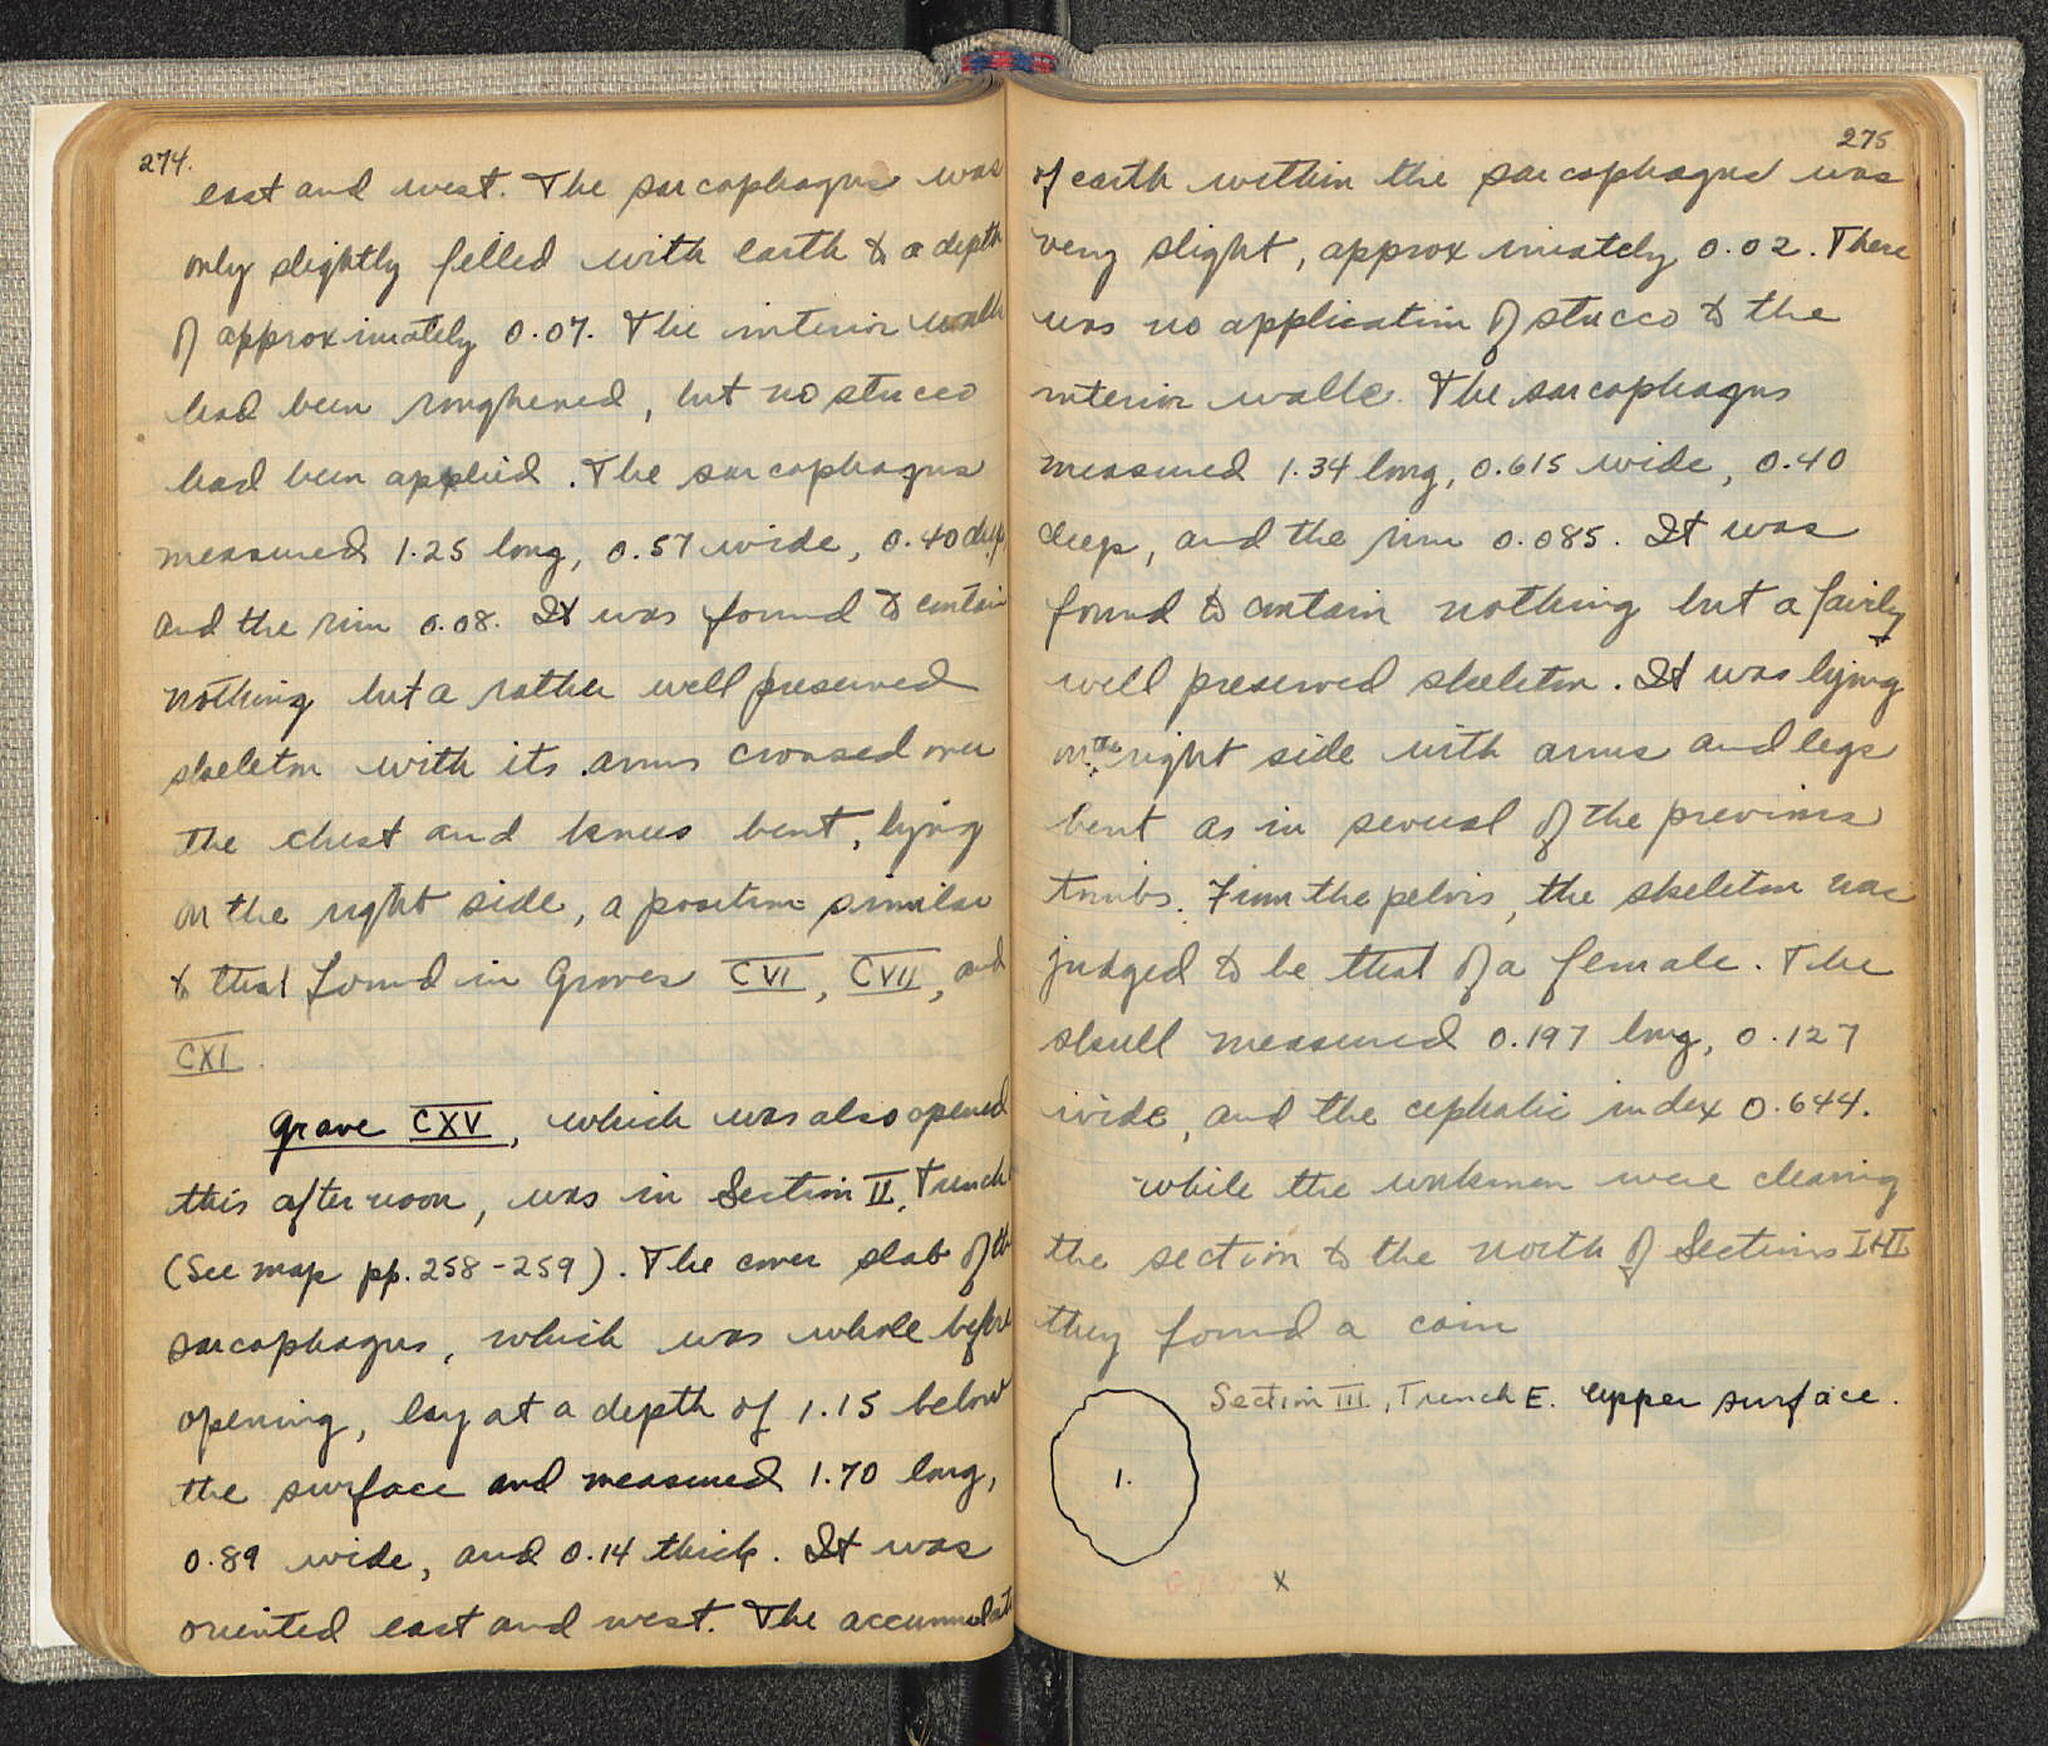 274.
east and west. The sarcophagus was
only slightly filled with earth to a depth
of approximately 0.07. The interior walls
had been roughened, but no stucco
had been applied. The sarcophagus
measured 1.25 long, 0.57 wide, 0.40 deep
and the rim 0.08. It was found to contain
nothing but a rather well preserved
skeleton with its arms crossed over
the chest and knees bent, lying
on the right side, a position similar
to that found in Graves CVI, CVII, and
CXI.
Grave CXV, which was also opened
this afternoon, was in Section II, Trench
(See map pp. 258-259). The cover slab of the
sarcophagus, which was whole before
opening, lay at a depth of 1.15 below
the surface and measured 1.70 long,
0.89 wide, and 0.14 thick. It was
oriented east and west. The accumulat
275
of earth within the sarcophagus was
very slight, approximately 0.02. There
was no application of stucco to the
interior walls. The sarcophagus
measured 1.34 long, 0.615 wide, 0.40
deep, and the rim 0.085. It was
found to contain nothing but a fairly
well preserved skeleton. It was lying
on the right side with arms and legs
bent as in several of the previous
tombs. From the pelvis, the skeleton was
judged to be that of a female. The
skull measured 0.197 long, 0.127
wide, and the cephalic index 0.644.
While the workmen were clearing
the section to the north of Sections I+II
they found a coin
Section III, Trench E. Upper surface.
1.
x